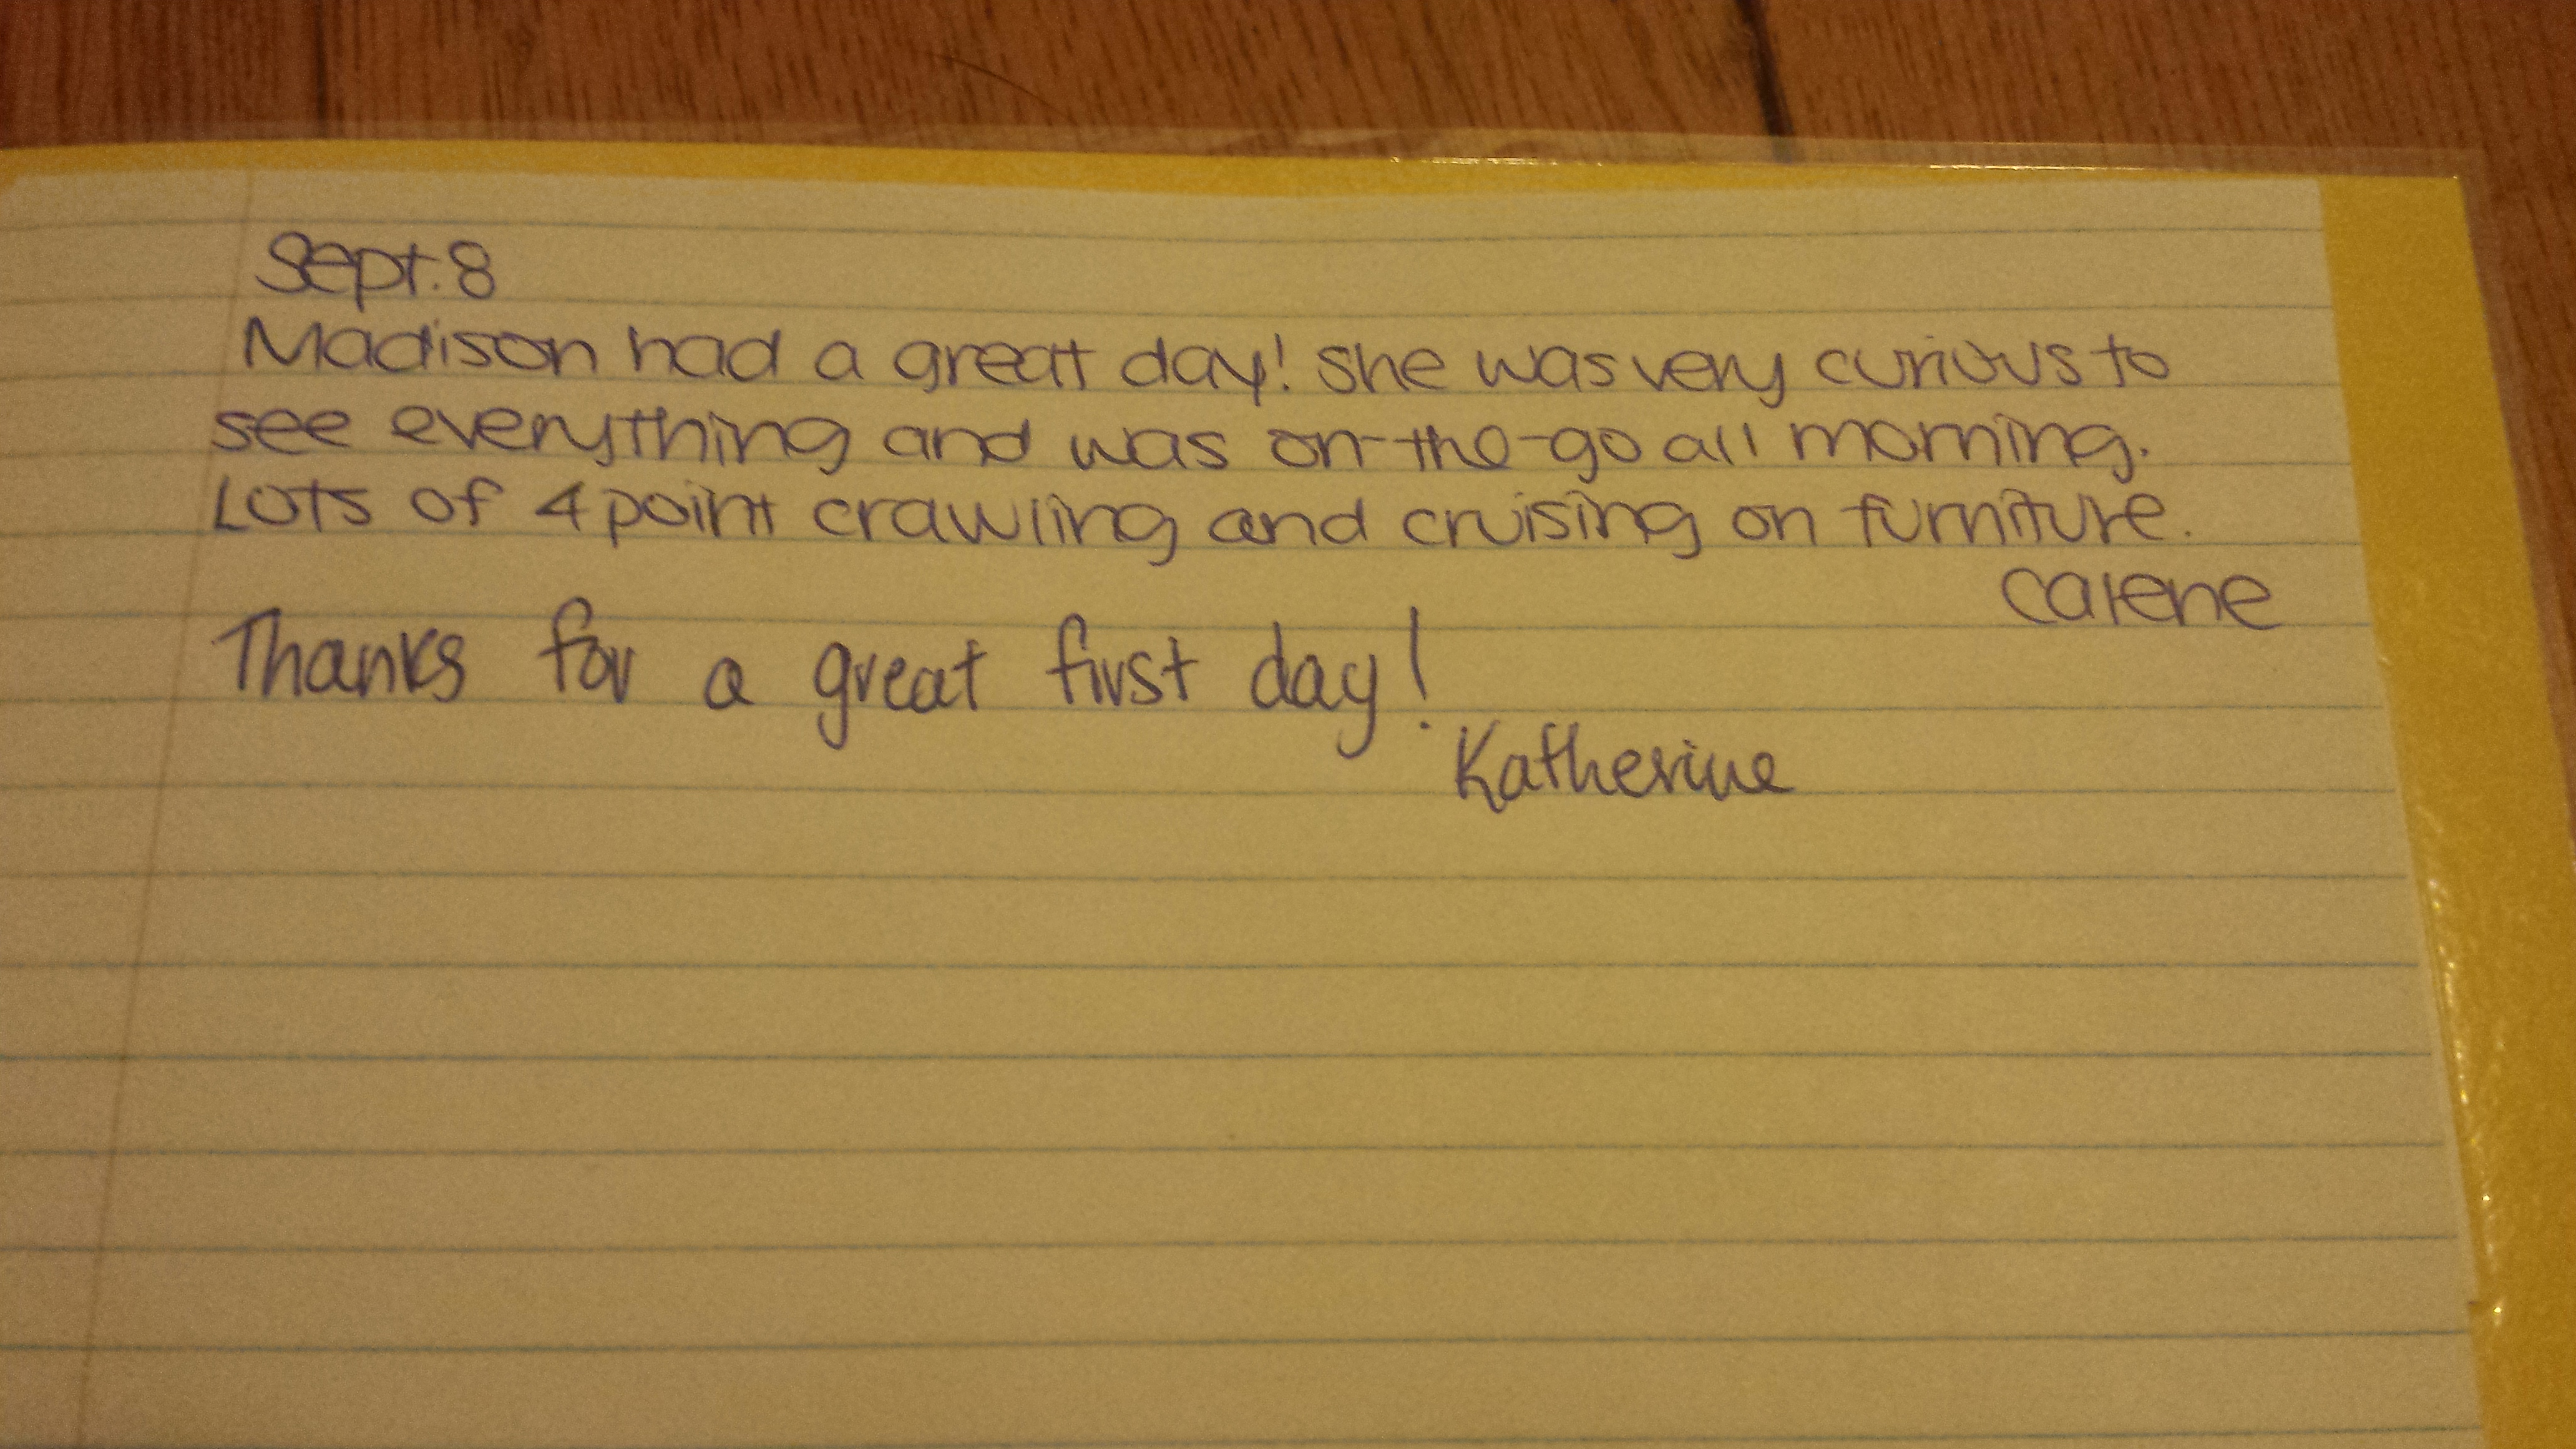 Sept. 8
Madison had a great day! She was very curious to
see everything and was on-the-go all morning.
Lots of 4 point crawling and cruising on furniture.
Carene
Thanks for a great first day!
Katherine